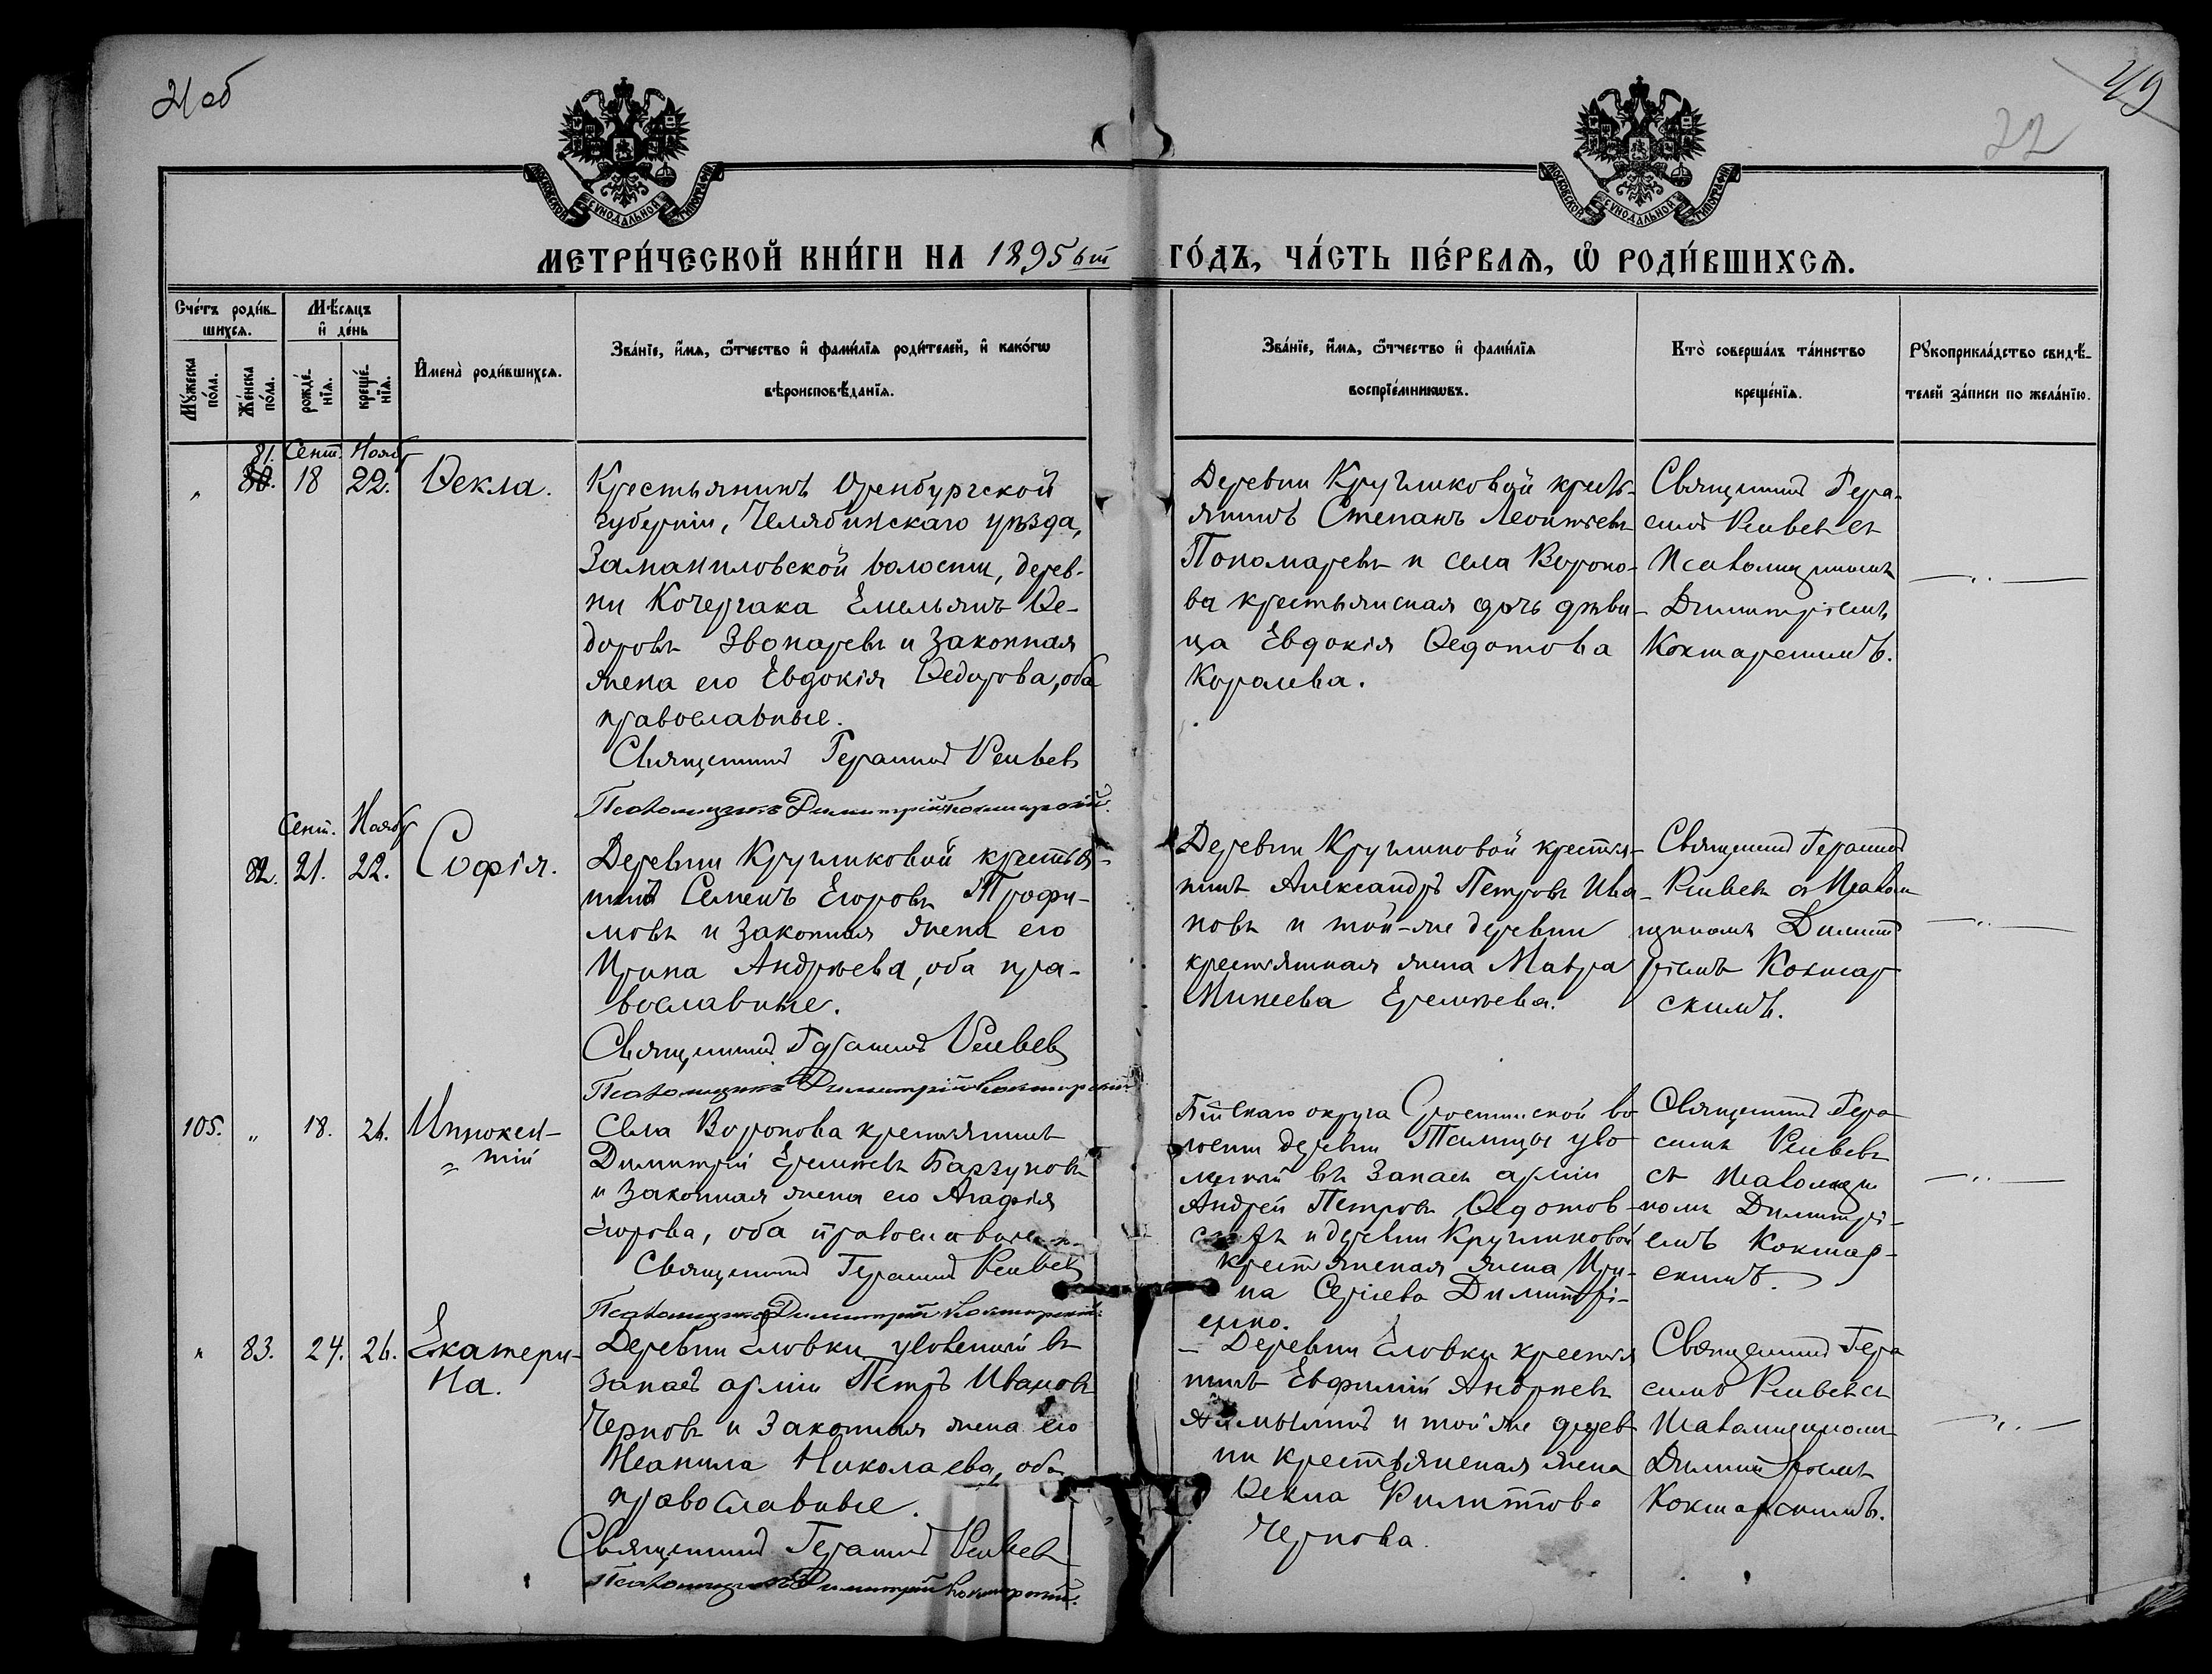 21 об
49
22
МОСКОВСКОЙ СУНОДАЛЬНОЙ ТИПОГРАФІИ
МОСКОВСКОЙ СУНОДАЛЬНОЙ ТИПОГРАФІИ
МЕТРИ́ЧЕСКОЙ КНИ́ГИ НА 1895 ый
ГО́ДЪ, ЧА́СТЬ ПЕ́РВАѦ, Ѡ РОДИ́ВШИХСѦ.
Сче́тъ роди́в-
шихсѧ.
Мѣ́сѧцъ
и҆ де́нь
Мꙋ́жеска
по́ла.
Же́нска
по́ла.
рожде́-
нїѧ.
креще́-
нїѧ.
И҆мена̀ роди́вшихсѧ.
Зва́нїе, и҆́мѧ, ѻ҆́тчество и҆ фамѝлїѧ роди́телей, и҆ како́гѡ
вѣроисповѣ́данїѧ.
Зва́нїе, и҆́мѧ, ѻ҆́тчество и҆ фамѝлїѧ
воспрїе́мникѡвъ.
Кто̀ соверша́лъ та́инство
креще́нїѧ.
Рꙋкоприкла́дство свидѣ́-
телей за́писи по жела́нїю.
81. Сент. Нояб
„ 80. 18 22. Ѳекла.
Крестьянинъ Оренбургской
губерніи, Челябинскаго уѣзда,
Заманиловской волости, дерев-
ни Кочердака Емельянъ Ѳе-
доровъ Звонаревъ и законная
жена его Евдокія Ѳедорова, оба
православные.
Священникъ Герасимъ
Псаломщикъ Димитрій Кокшарскій.
Деревни Кругликовой кресть-
янинъ Степанъ Леонтьевъ
Пономаревъ и села Вороно-
ва крестьянская дочь дѣви-
ца Евдокія Ѳедотова
Королева.
Священникъ Гера-
симъ съ
Псаломщикомъ
Димитріемъ
Кокшарскимъ.
— „ —
Сент. Нояб
82. 21. 22. Софія.
Деревни Кругликовой крестья-
нинъ Семенъ Егоровъ Трофи-
мовъ и законная жена его
Ирина Андреева, оба пра-
вославные.
Священникъ Герасимъ
Псаломщикъ Димитрій Кокшарскій
Деревни Кругликовой крестья-
нинъ Александръ Петровъ Ива-
новъ и той-же деревни
крестьянская жена Мавра
Минеева Еремѣева.
Священникъ Герасимъ
съ Псалом
щикомъ Димит
ріемъ Кокшар
скимъ.
— „ —
105. „ 18. 26. Иннокен-
тій
Села Воронова крестьянинъ
Димитрій Еремѣевъ Барзуновъ
и законная жена его Агафія
Егорова, оба православные.
Священникъ Герасимъ
Псаломщикъ Димитрій Кокшарскій.
Бійскаго округа во
лости деревни уво
ленный въ запасъ арміи
Андрей Петровъ Ѳедотов-
и деревни Кругликовой
крестьянская жена Ири-
на Сергіева Димитрі-
енко.
Священникъ Гера
симъ
съ Псаломщи
комъ Димитрі-
емъ Кокшар-
скимъ.
— „ —
„ 83. 24. 26. Екатери-
на.
Деревни Еловки уволенный въ
запасъ арміи Петръ Ивановъ
Черновъ и законная жена его
Неанила Николаева, оба
православные.
Священникъ Герасимъ
Псаломщикъ Димитрій Кокшарскій.
Деревни Еловки крестья
нинъ Евфимій Андреевъ
и той же дерев
ни крестьянская жена
Ѳекла Филиппова
Чернова.
Священникъ Гера
симъ съ
Псаломщикомъ
Димитріемъ
Кокшарскимъ.
— „ —